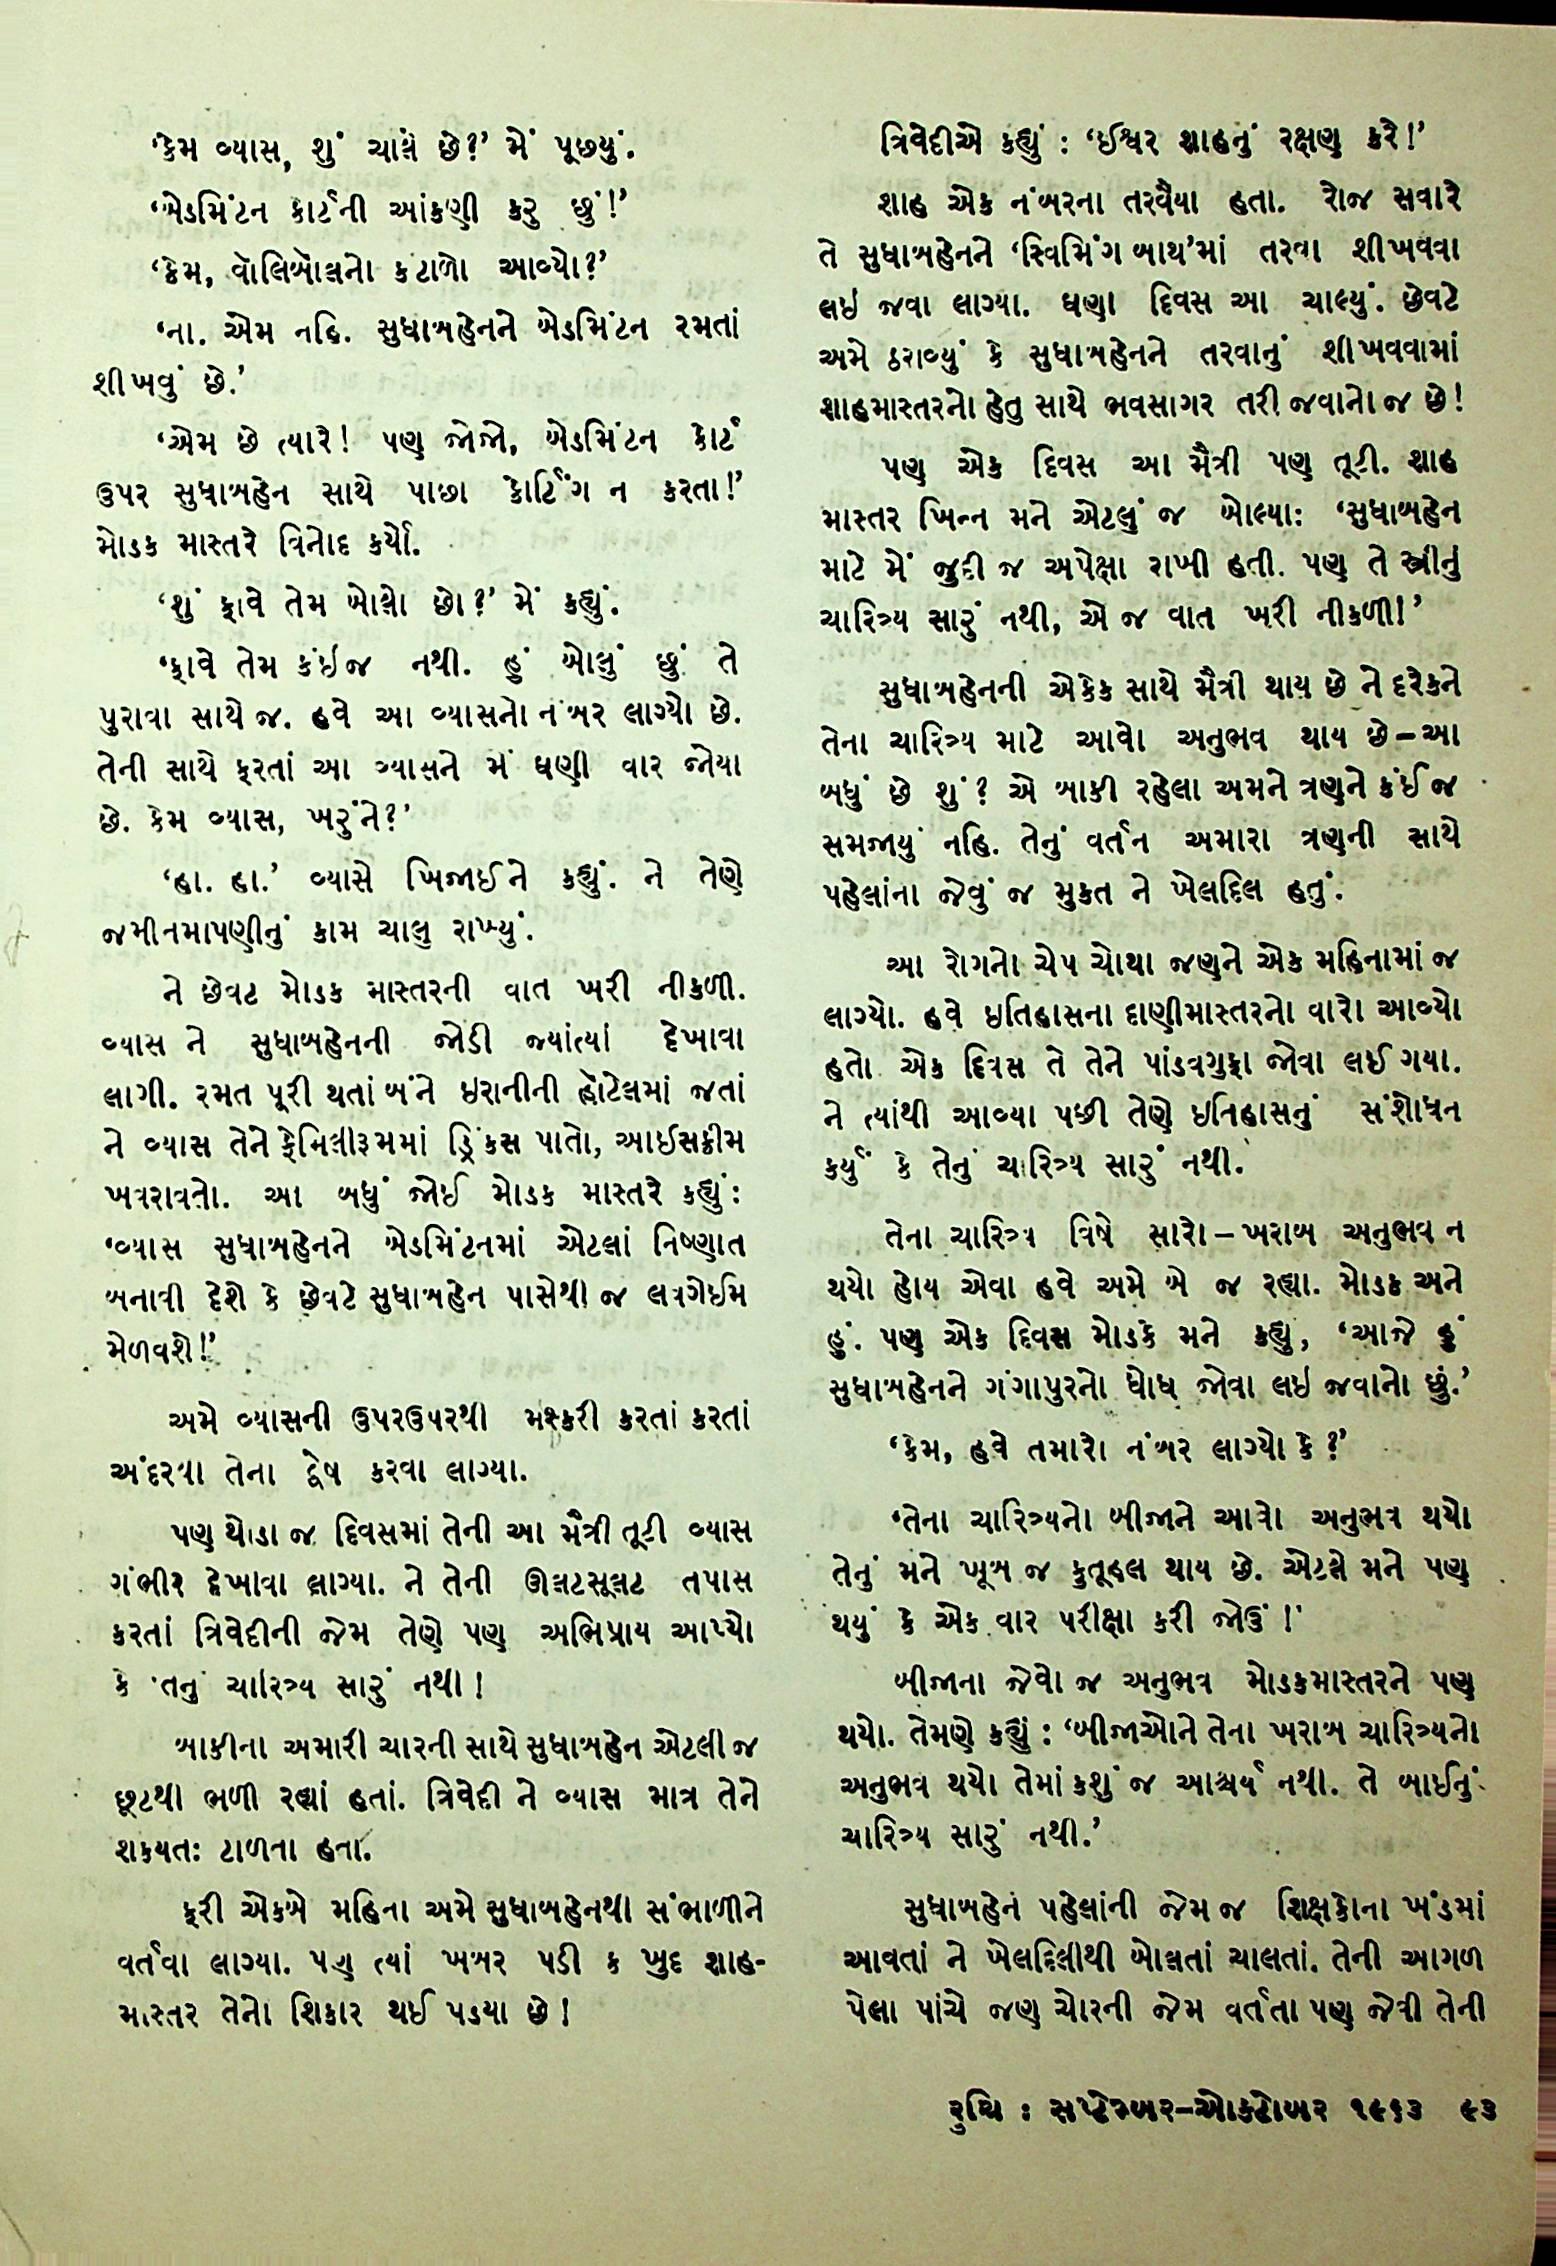 ‘કેમ વ્યાસ, શું ચાલે છે?’ મેં પૂછયું.
‘બેડમિંટન કોર્ટની આંકણી કરુ છું!’
‘કેમ, વૉલિબૉલનો કંટાળો આવ્યો?’
‘ના. એમ નહિ. સુધાબહેનને બેડમિંટન રમતાં
શીખવું છે.’
‘એમ છે ત્યારે! પણ જોજો, બેડમિંટન કોર્ટ
ઉપર સુધાબહેન સાથે પાછા કોર્ટિંગ ન કરતા!’
મોડક માસ્તરે વિનોદ કર્યો.
‘શું ફાવે તેમ બોલો છો?’ મેં કહ્યું.
‘ફાવે તેમ કંઇજ નથી. હું બોલું છું તે
પુરાવા સાથે જ. હવે આ વ્યાસનો નંબર લાગ્યો છે.
તેની સાથે ફરતાં આ વ્યાસને મેં ઘણી વાર જોયા
છે. કેમ વ્યાસ, ખરુંને?’
‘હા. હા.’ વ્યાસે ખિજાઈને કહ્યું. ને તેણે
જમીનમાપણીનું કામ ચાલુ રાખ્યું.
ને છેવટ મોડક માસ્તરની વાત ખરી નીકળી.
વ્યાસ ને સુધાબહેનની જોડી જ્યાંત્યાં દેખાવા
લાગી. રમત પૂરી થતાં બંને ઇરાનીની હૉટેલમાં જતાં
ને વ્યાસ તેને ફેમિલીરૂમમાં ડ્રિંકસ પાતો, આઈસક્રીમ
ખવરાવતો. આ બધું જોઈ મોડક માસ્તરે કહ્યું:
‘વ્યાસ સુધાબહેનને બેડમિંટનમાં એટલાં નિષ્ણાત
બનાવી દેશે કે છેવટે સુધાબહેન પાસેથી જ લવગેઈમ
મેળવશે!’
અમે વ્યાસની ઉપરઉપરથી મશ્કરી કરતાં કરતાં
અંદરથી તેના દ્વેષ કરવા લાગ્યા.
પણ થોડા જ દિવસમાં તેની આ મૈત્રી તૂટી વ્યાસ
ગંભીર દેખાવા લાગ્યા. ને તેની ઊલટસૂલટ તપાસ
કરતાં ત્રિવેદીની જેમ તેણે પણ અભિપ્રાય આપ્યો
કે તેનું ચારિત્ર્ય સારું નથી!
બાકીના અમારી ચારની સાથે સુધાબહેન એટલી જ
છૂટથી ભળી રહ્યાં હતાં. ત્રિવેદી ને વ્યાસ માત્ર તેને
શકયતઃ ટાળતા હતા.
ફરી એકબે મહિના અમે સુધાબહેનથી સંભાળીને
વર્તવા લાગ્યા. પણ ત્યાં ખબર પડી કે ખુદ શાહ-
માસ્તર તેનો શિકાર થઈ પડયા છે!
ત્રિવેદીએ કહ્યું : ‘ઈશ્વર શાહનું રક્ષણ કરે!’
શાહ એક નંબરના તરવૈયા હતા. રોજ સવારે
તે સુધાબહેનને ‘સ્વિમિંગ બાથ’માં તરવા શીખવવા
લઇ જવા લાગ્યા. ઘણા દિવસ આ ચાલ્યું. છેવટે
અમે ઠરાવ્યું કે સુધાબહેનને તરવાનું શીખવવામાં
શાહમાસ્તરનો હેતુ સાથે ભવસાગર તરી જવાનો જ છે!
પણ એક દિવસ આ મૈત્રી પણ તૂટી. શાહ
માસ્તર ખિન્ન મને એટલું જ બોલ્યા: ‘સુધાબહેન
માટે મેં જુદી જ અપેક્ષા રાખી હતી. પણ તે સ્ત્રીનું
ચારિત્ર્ય સારું નથી, એ જ વાત ખરી નીકળી!’
સુધાબહેનની એકેક સાથે મૈત્રી થાય છે ને દરેકને
તેના ચારિત્ર્ય માટે આવો અનુભવ થાય છે–આ
બધું છે શું? એ બાકી રહેલા અમને ત્રણને કંઈ જ
સમજાયું નહિ. તેનું વર્તન અમારા ત્રણની સાથે
પહેલાંના જેવું જ મુકત ને ખેલદિલ હતું.
આ રોગનો ચેપ ચોથા જણને એક મહિનામાં જ
લાગ્યો. હવે ઇતિહાસના દાણીમાસ્તરનો વારો આવ્યો
હતો એક દિવસ તે તેને પાંડવગુફા જોવા લઈ ગયા.
ને ત્યાંથી આવ્યા પછી તેણે ઇતિહાસનું સંશોધન
કર્યું કે તેનું ચારિત્ર્ય સારું નથી.
તેના ચારિત્ર્ય વિષે સારો–ખરાબ અનુભવ ન
થયો હોય એવા હવે અમે બે જ રહ્યા. મોડક અને
હું. પણ એક દિવસ મોડકે મને કહ્યું, ‘આજે હું
સુધાબહેનને ગંગાપુરનો ધોધ જોવા લઇ જવાનો છું.’
‘કેમ, હવે તમારો નંબર લાગ્યો કે?’
‘તેના ચારિત્ર્યનો બીજાને આવો અનુભવ થયો
તેનું મને ખૂબ જ કુતૂહલ થાય છે. એટલે મને પણ
થયું કે એક વાર પરીક્ષા કરી જોઉં!’
બીજાના જેવો જ અનુભવ મોડકમાસ્તરને પણ
થયો. તેમણે કહ્યું : ‘બીજાઓને તેના ખરાબ ચારિત્ર્યનો
અનુભવ થયો તેમાં કશું જ આશ્ચર્ય નથી. તે બાઈનું
ચારિત્ર્ય સારું નથી.’
સુધાબહેન પહેલાંની જેમ જ શિક્ષકોના ખંડમાં
આવતાં ને ખેલદિલીથી બોલતાં ચાલતાં. તેની આગળ
પેલા પાંચે જણ ચોરની જેમ વર્તતા પણ જેવી તેની
રુચિ : સપ્ટેમ્બર–ઓક્ટોબર ૧૯૬૩ ૯૩